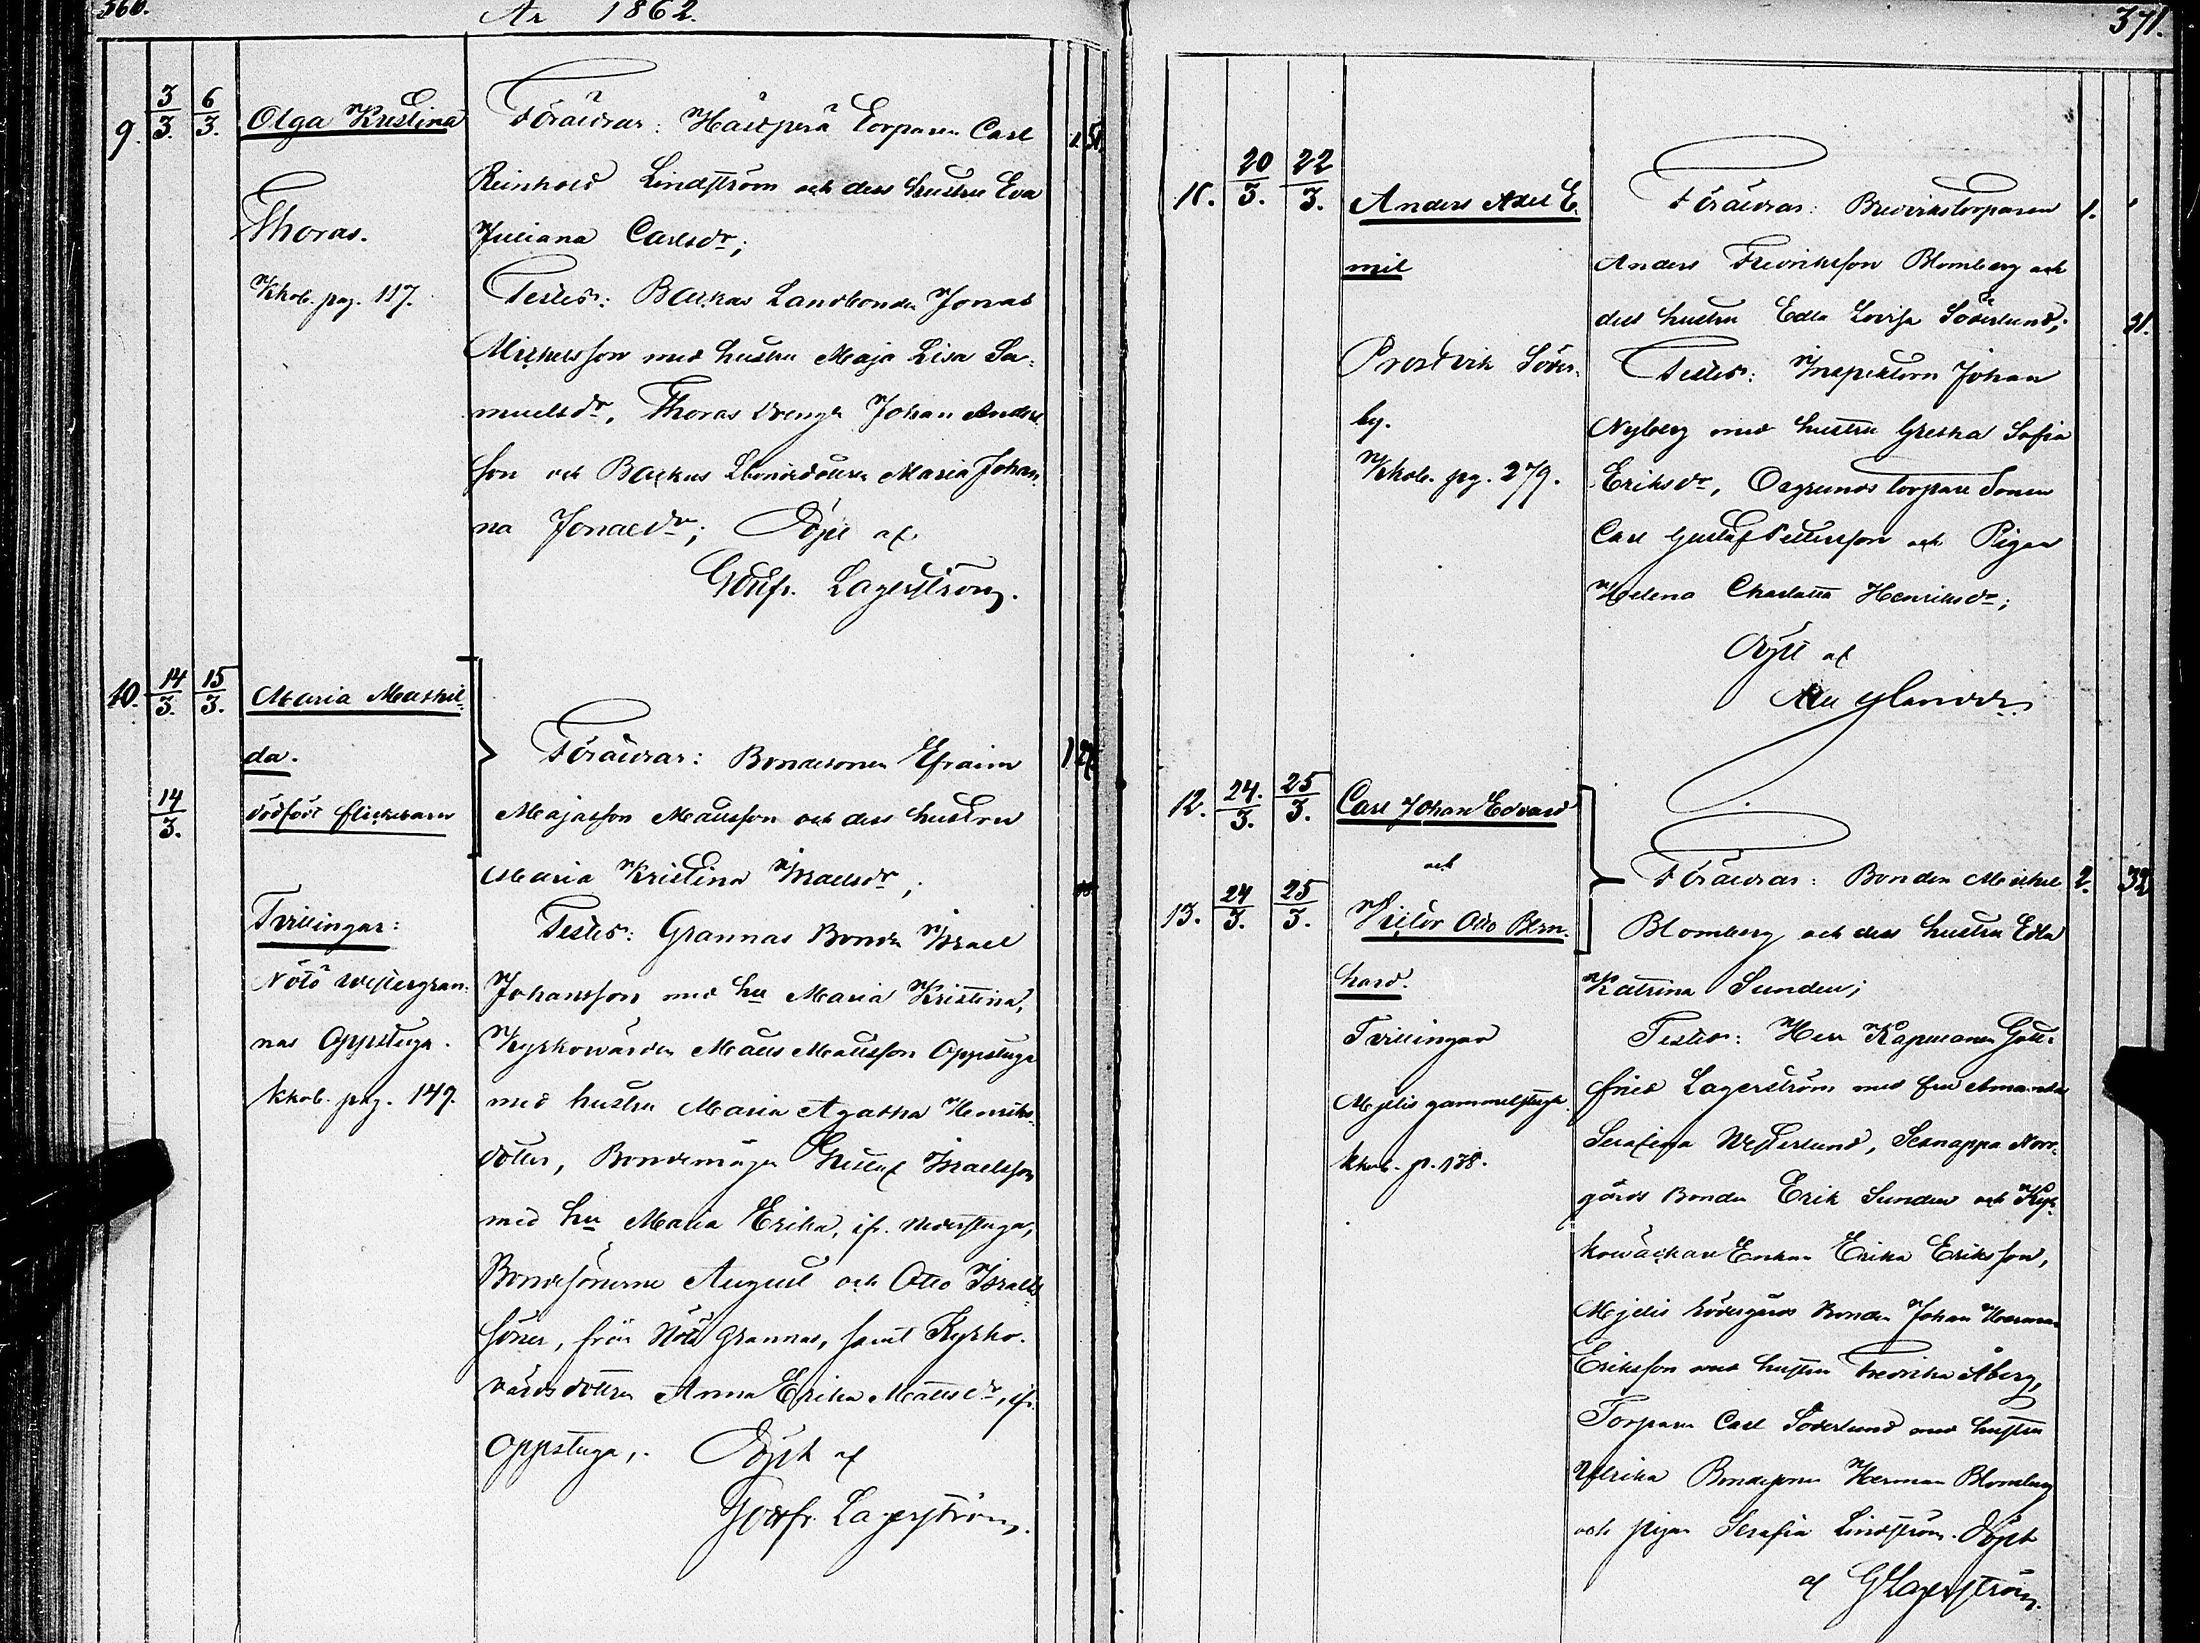 360.
År 1862.
9. 3/3. 6/3. Olga Kristina
Thoras.
Kkob. pag. 117.
Föräldrar: Torparen Carl
Reinhold Lindström och dess hustru Eva
Juliana Carlsdr;
Testes: Backas Landbonden Jonas
Michelsson med hustru Maja Lisa Sa-
muelsdr, Thoras drengen Johan Anders
son och Backas Maria Johan
na Jonaedr; Döpt af
Gottfr. Lagerström.
10. 14/3. 15/3. Maria Mathil-
da.
14/3. dödfödt flickebarn
Tvillingar:
Nötö Westergran-
nas Oppstuga.
Kkob. pag. 149.
Föräldrar: Bondesonen Efraim
Mattsson och dess hustru
Maria Kristina Israelsdr;
Testes: Grannas Bonden Israel
Johansson med hu Maria Kristina,
Kyrkowärden Matts Mattsson Oppstuga
med hustru Maria Agatha Henriks-
dotter, Bondemågen Gustaf Israelsson
med hu Maria Erika, ifr. Nederstuga,
Bondesönerne August och Otto Israels
söner, från Nötö Grannas, samt Kyrko-
värdsdottren Anna Erika Mattsdr, ifr.
Oppstuga,. Döpt af
Gottfr. Lagerström.
371.
11. 20/3. 22/3. Anders Axel E-
mil
Prostvik Söder-
by.
Kkob. pg. 279.
Föräldrar: Torparen 1.
Anders Fredriksson Blomberg och
dess hustru Edla Lovisa Söderlund; 31.
Testes: Inspektorn Johan
Nyberg med hustru Gretha Sofia
Eriksdr, Torpare Sonen
Carl Gustaf Pettersson och Pigan
Helena Charlotta Henriksdr;
Döpt af
12. 24/3. 25/3. Carl Johan Edvard
och
13. 24/3. 25/3. Victor Otto Bern-
hard.
Tvillingar
Mjelis gammelstuga.
Kkob. p. 138.
Föräldrar: Bonden Michel 2. 32
Blomberg och dess hustru Edla
Katrina Sundén;
Testes: Herr Kapellanen Gott-
fried Lagerström med fru Amanda
Serafina Westerlund, Schnappa Norr-
gårds Bonden Erik Sundén och Kyr-
kowäktare Enkan Erika Eriksson,
Mjelis Södergårds Bonden Johan Herman
Eriksson med hustru Fredrika Åberg,
Torparen Carl Söderlund med hustru
Ulrika Bondesonen Herman Blomberg
och pigan Serafia Lindström. Döpt
af GLagerström.